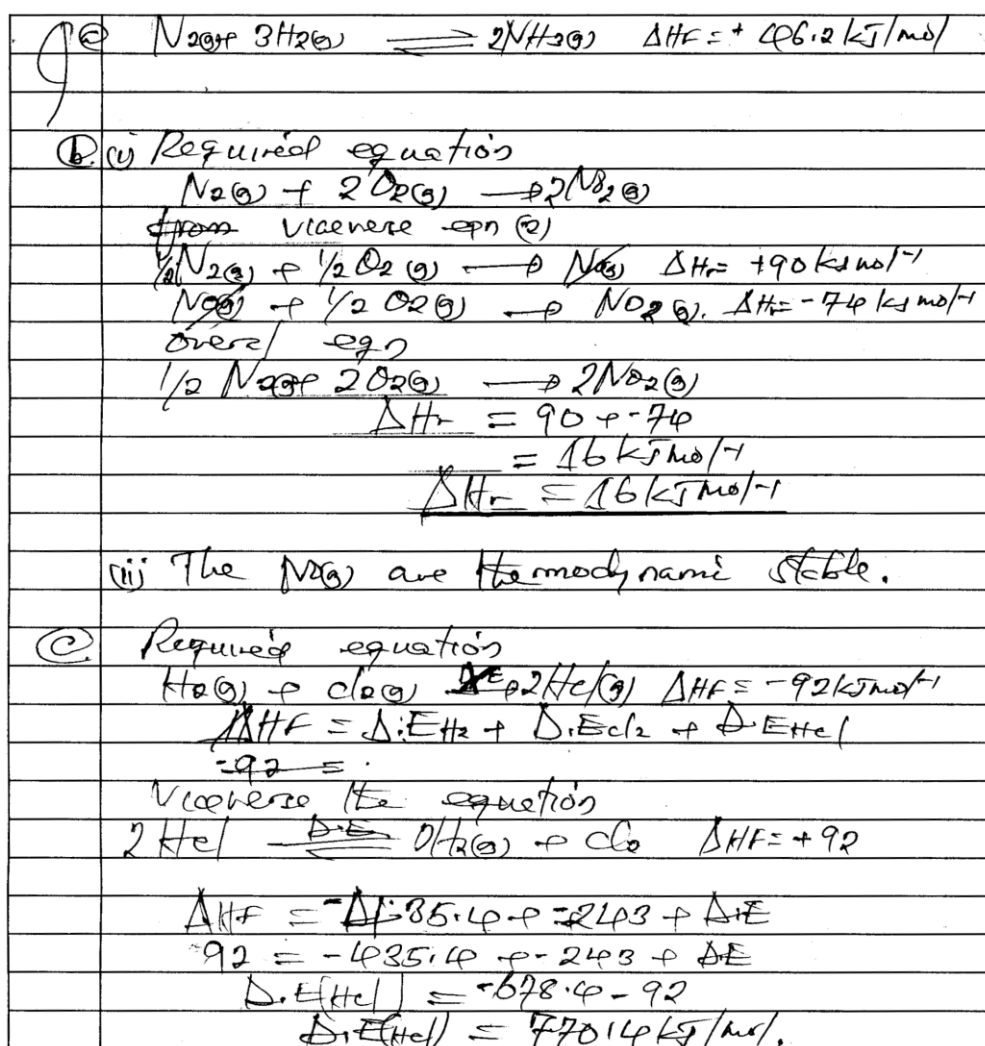 9 (a) N2(g) + 3H2(g) ⇌ 2NH3(g) ΔHF = + 46.2 kJ/mol
(b) (i) Required equation
N2(g) + 2O2(g) → 2NO2(g)
from viceverse eqn (2)
1/2 N2(g) + 1/2 O2(g) → NO(g) ΔHr = +90 kJ mol-1
NO(g) + 1/2 O2(g) → NO2(g). ΔHr = -74 kJ mol-1
overal eqn
1/2 N2(g) + 2O2(g) → 2NO2(g)
ΔHr = 90 + -74
= 16 kJ mol-1
ΔHr = 16 kJ mol-1
(ii) The are themodynami stable.
(c) Required equation
H2(g) + cl2(g) → 2Hcl(g) ΔHF = -92 kJ mol-1
ΔHF = Δ.EH2 + D.Ecl2 + D.EHcl
-92 = .
Viceverse the equation
2Hcl D.E ⇌ H2(g) + Cl2 ΔHF = + 92
ΔHF = 35.4 + -243 + Δ.E
-92 = -435.4 + -243 + ΔE
D.E(Hcl) = -678.4 - 92
D.E(Hcl) = 770.4 kJ/mol.